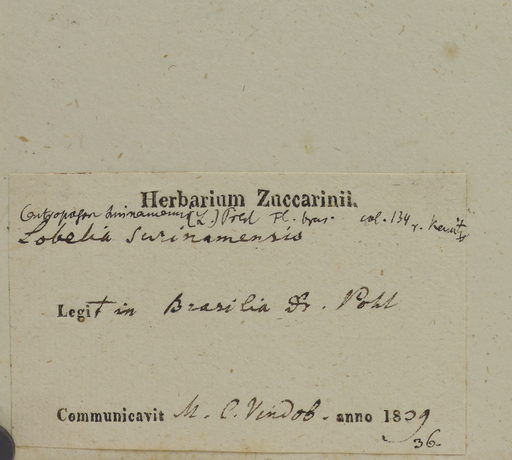 Herbarium Zuccarinii.
Centropogon surinamensis (L.) Presl Fl. bras. col. 134
Lobelia Surinamensis
Legit in Brasilia Dr. Pohl
Communicavit M. C. Vindob. anno 1839
36.